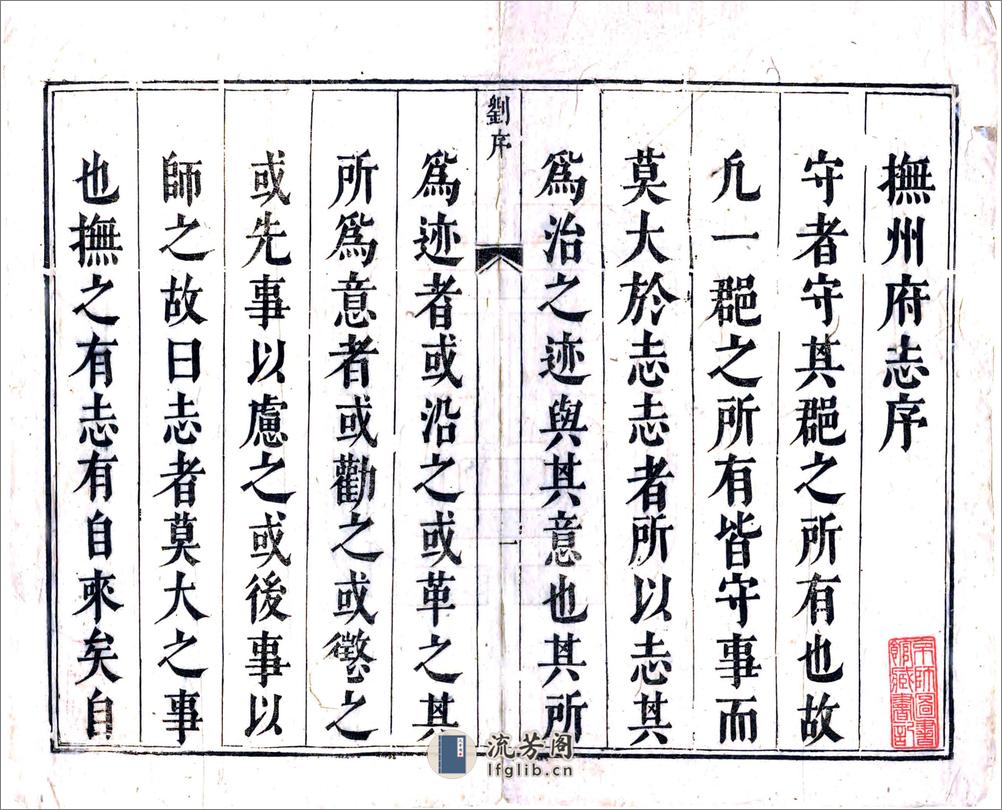 撫州府志序
守者守其郡之所有也故
凡一郡之所有皆守事而
莫大於志志者所以志其
爲治之迹與其意也其所
劉序
一
爲迹者或沿之或革之其
所爲意者或勸之或懲之
或先事以慮之或後事以
師之故曰志者莫大之事
也撫之有志有自來矣自
京師圖書館藏書記
流芳阁
lfglib.cn